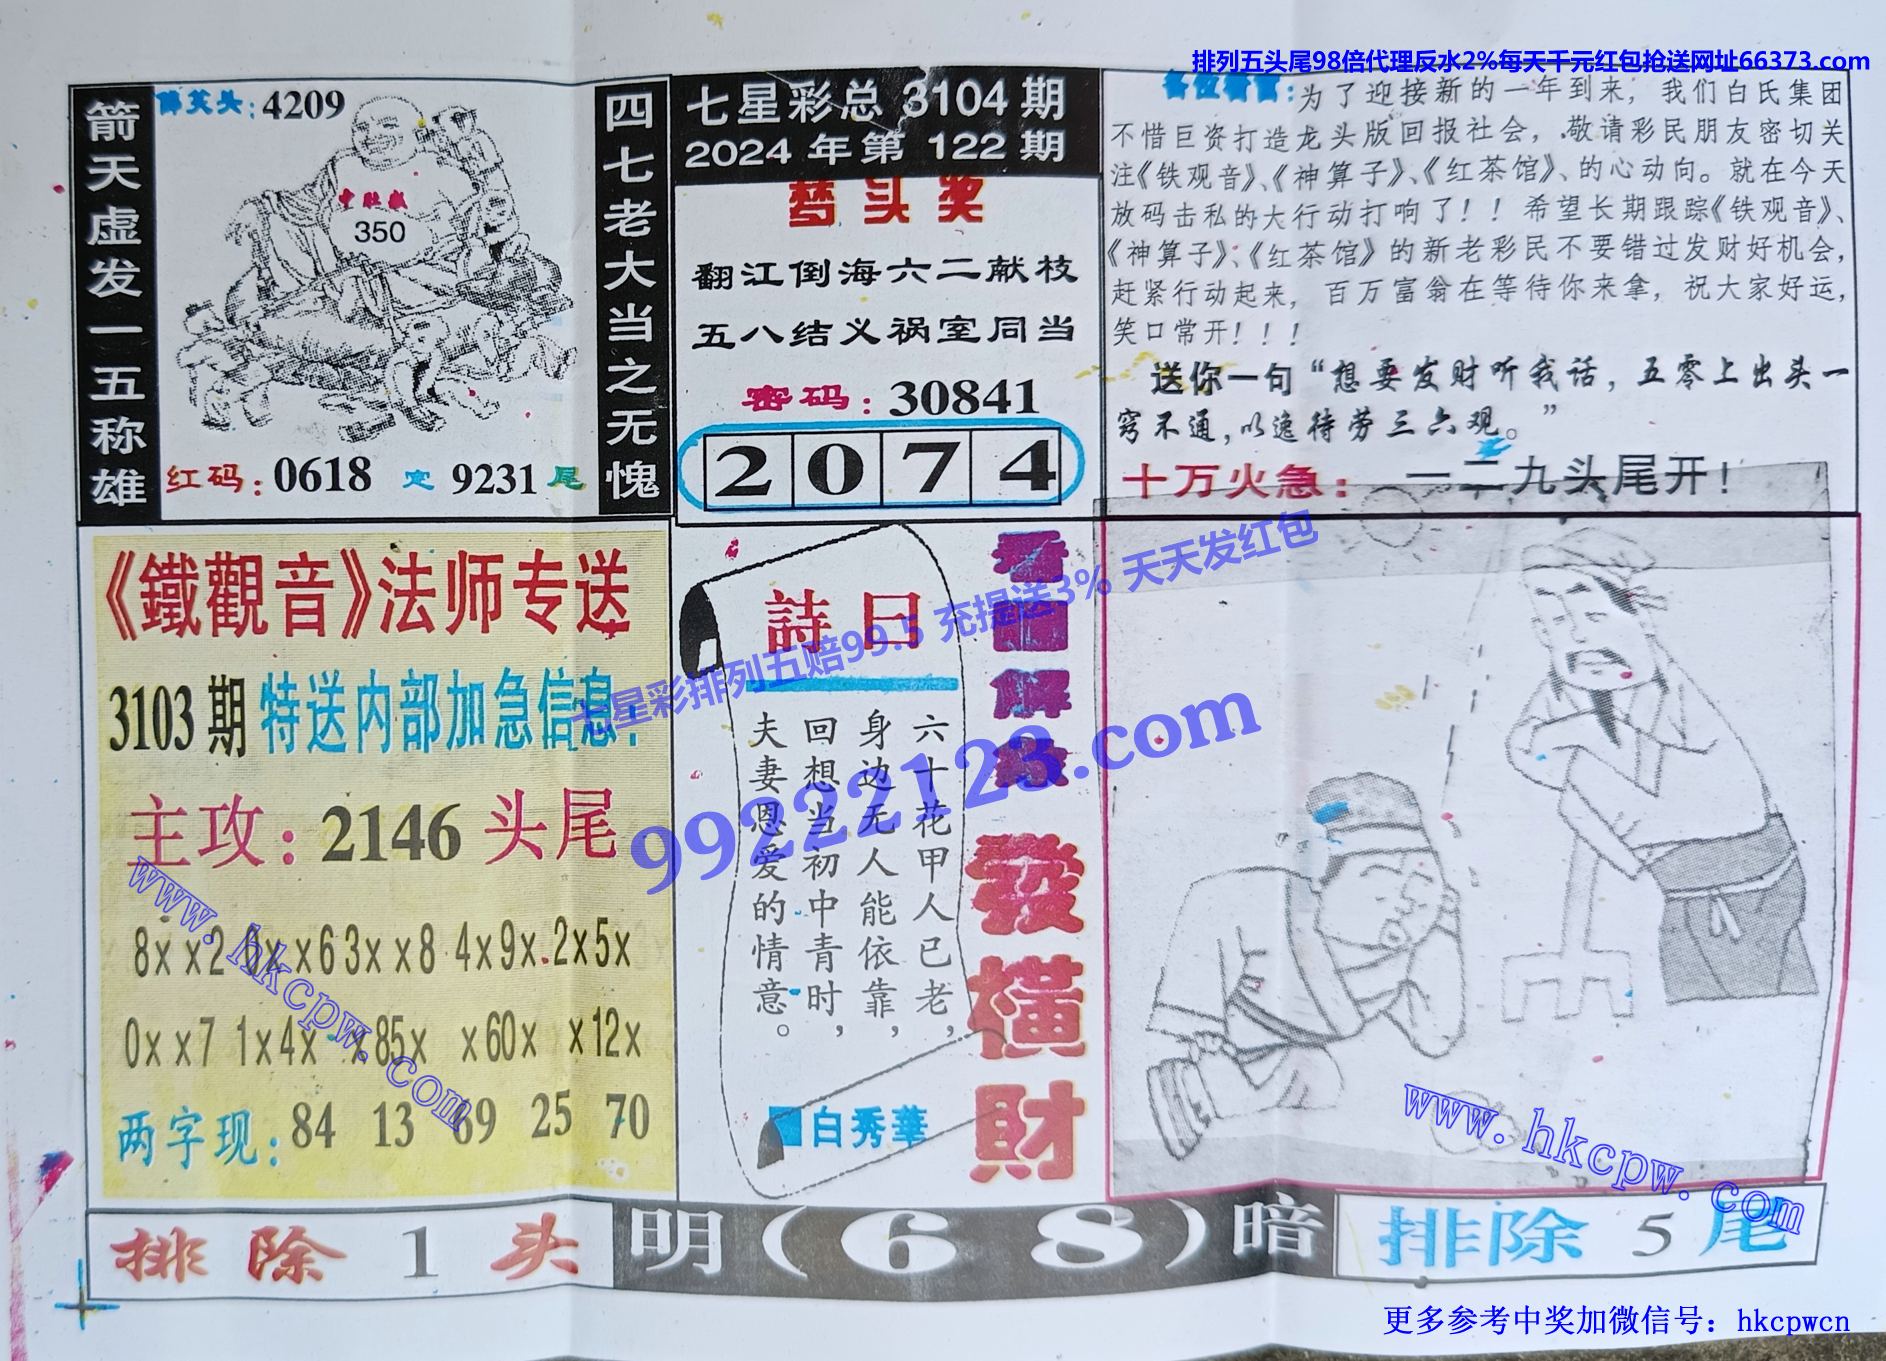 排列五头尾98倍代理反水2%每天千元红包抢送网址66373.com
箭天虚发一五称雄
4209
350
红码：0618 定 9231 尾
四七老大当之无愧
七星彩总 3104 期
2024 年第 122 期
梦头奖
翻江倒海六二献枝
五八结义祸室同当
密码：30841
2 0 7 4
为了迎接新的一年到来，我们白氏集团
不惜巨资打造龙头版回报社会，敬请彩民朋友密切关
注《铁观音》、《神算子》、《红茶馆》、的心动向。就在今天
放码击私的大行动打响了！！希望长期跟踪《铁观音》、
《神算子》、《红茶馆》的新老彩民不要错过发财好机会，
赶紧行动起来，百万富翁在等待你来拿，祝大家好运，
笑口常开！！！
送你一句“想要发财听我话，五零上出头一
窍不通，以逸待劳三六观。”
十万火急：一二九头尾开！
《鐵觀音》法师专送
3103 期 特送内部加急信息：
主攻：2146 头尾
8xx2 6xx6 3xx8 4x9x 2x5x
0xx7 1x4x x85x x60x x12x
两字现：84 13 69 25 70
詩曰
六十花甲人已老，
身边无人能依靠，
回想当初中青时，
夫妻恩爱的情意。
白秀華
發橫財
七星彩排列五赔99.5 充提送3% 天天发红包
99222123.com
www.hkcpw.com
www.hkcpw.com
排除 1 头
明（68）暗
排除 5 尾
更多参考中奖加微信号：hkcpwcn